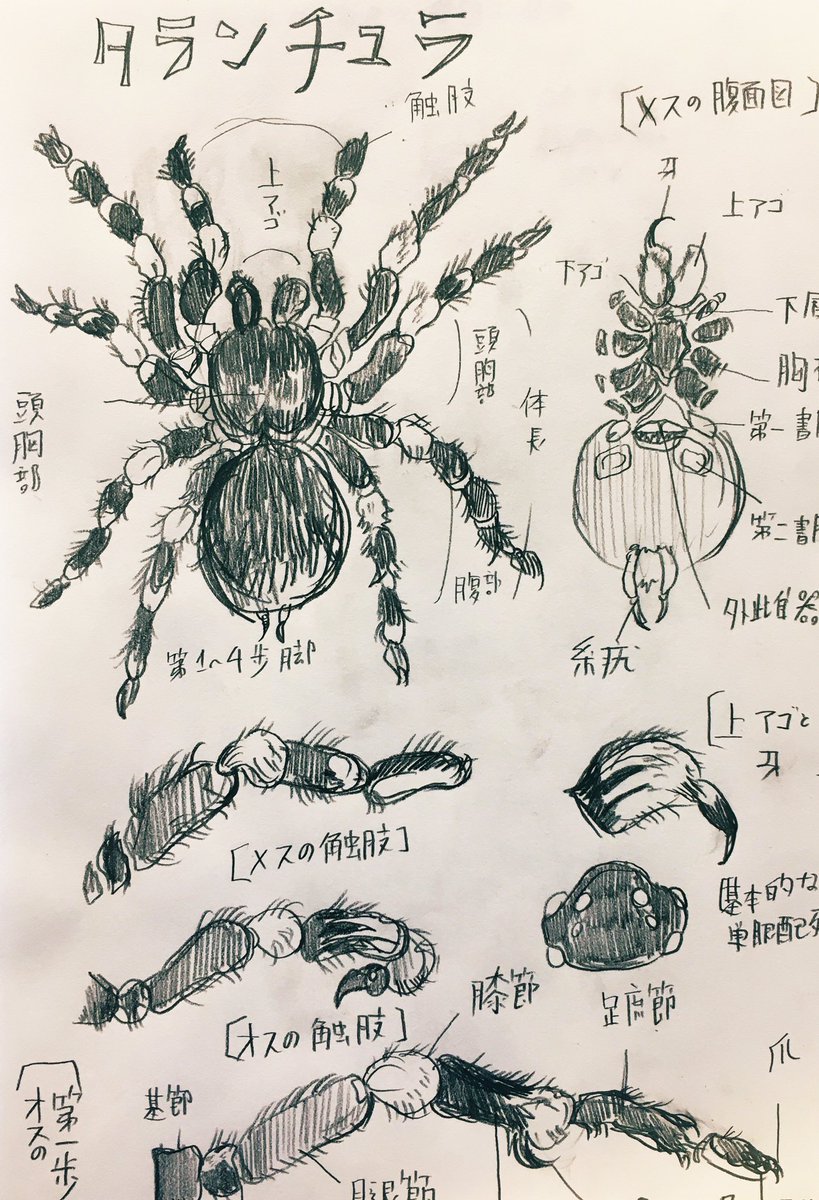 タランチュラ
触肢
上アゴ
頭胸部
体長
頭胸部
腹部
第1〜4歩脚
[メスの腹面図]
牙
上アゴ
下アゴ
下唇
胸
第一書
第二書
外雌器
糸疣
[メスの触肢]
[上アゴと
牙
基本的な
単眼配列
[オスの触肢]
膝節
足庶節
爪
[第一歩
オスの
基節
腿節